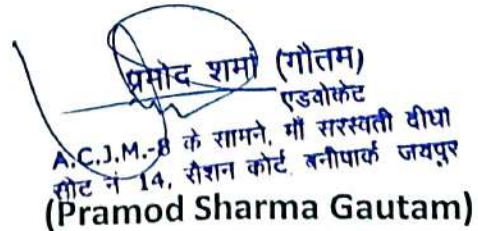 प्रमोद शर्मा (गौतम)
एडवोकेट
A.C.J.M.-8 के सामने, माँ सरस्वती वीधा
सीट नं 14, सैशन कोर्ट, बनीपार्क जयपुर
(Pramod Sharma Gautam)